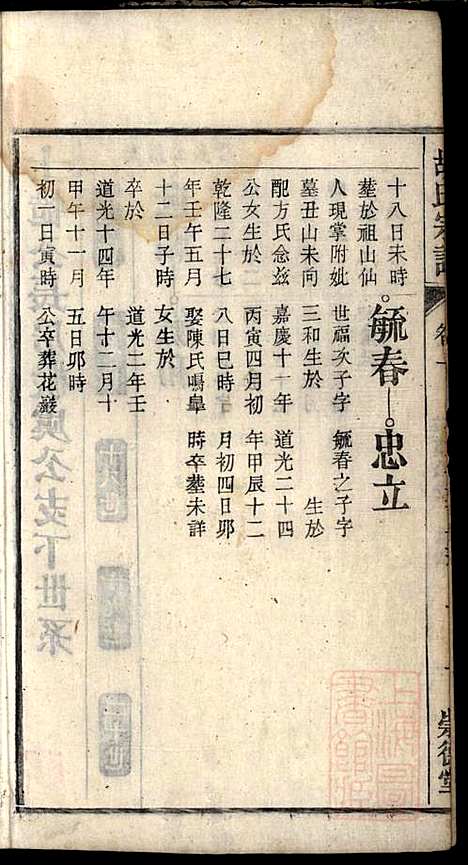 十八日未時
塟於祖山仙
人現掌附妣
墓丑山未向
配方氏念茲
公女生於二
乾隆二十七
年壬午五月
十二日子時
卒於
道光十四年
甲午十一月
初一日寅時
毓春
世福次子字
三和生於
嘉慶十一年
丙寅四月初
八日巳時
娶陳氏鳴臯
女生於
道光二年壬
午十二月十
五日卯時
公卒葬花巖
忠立
毓春之子字
生於
道光二十四
年甲辰十二
月初四日卯
時卒塟未詳
氏宗譜
崇德堂
上海圖書館藏